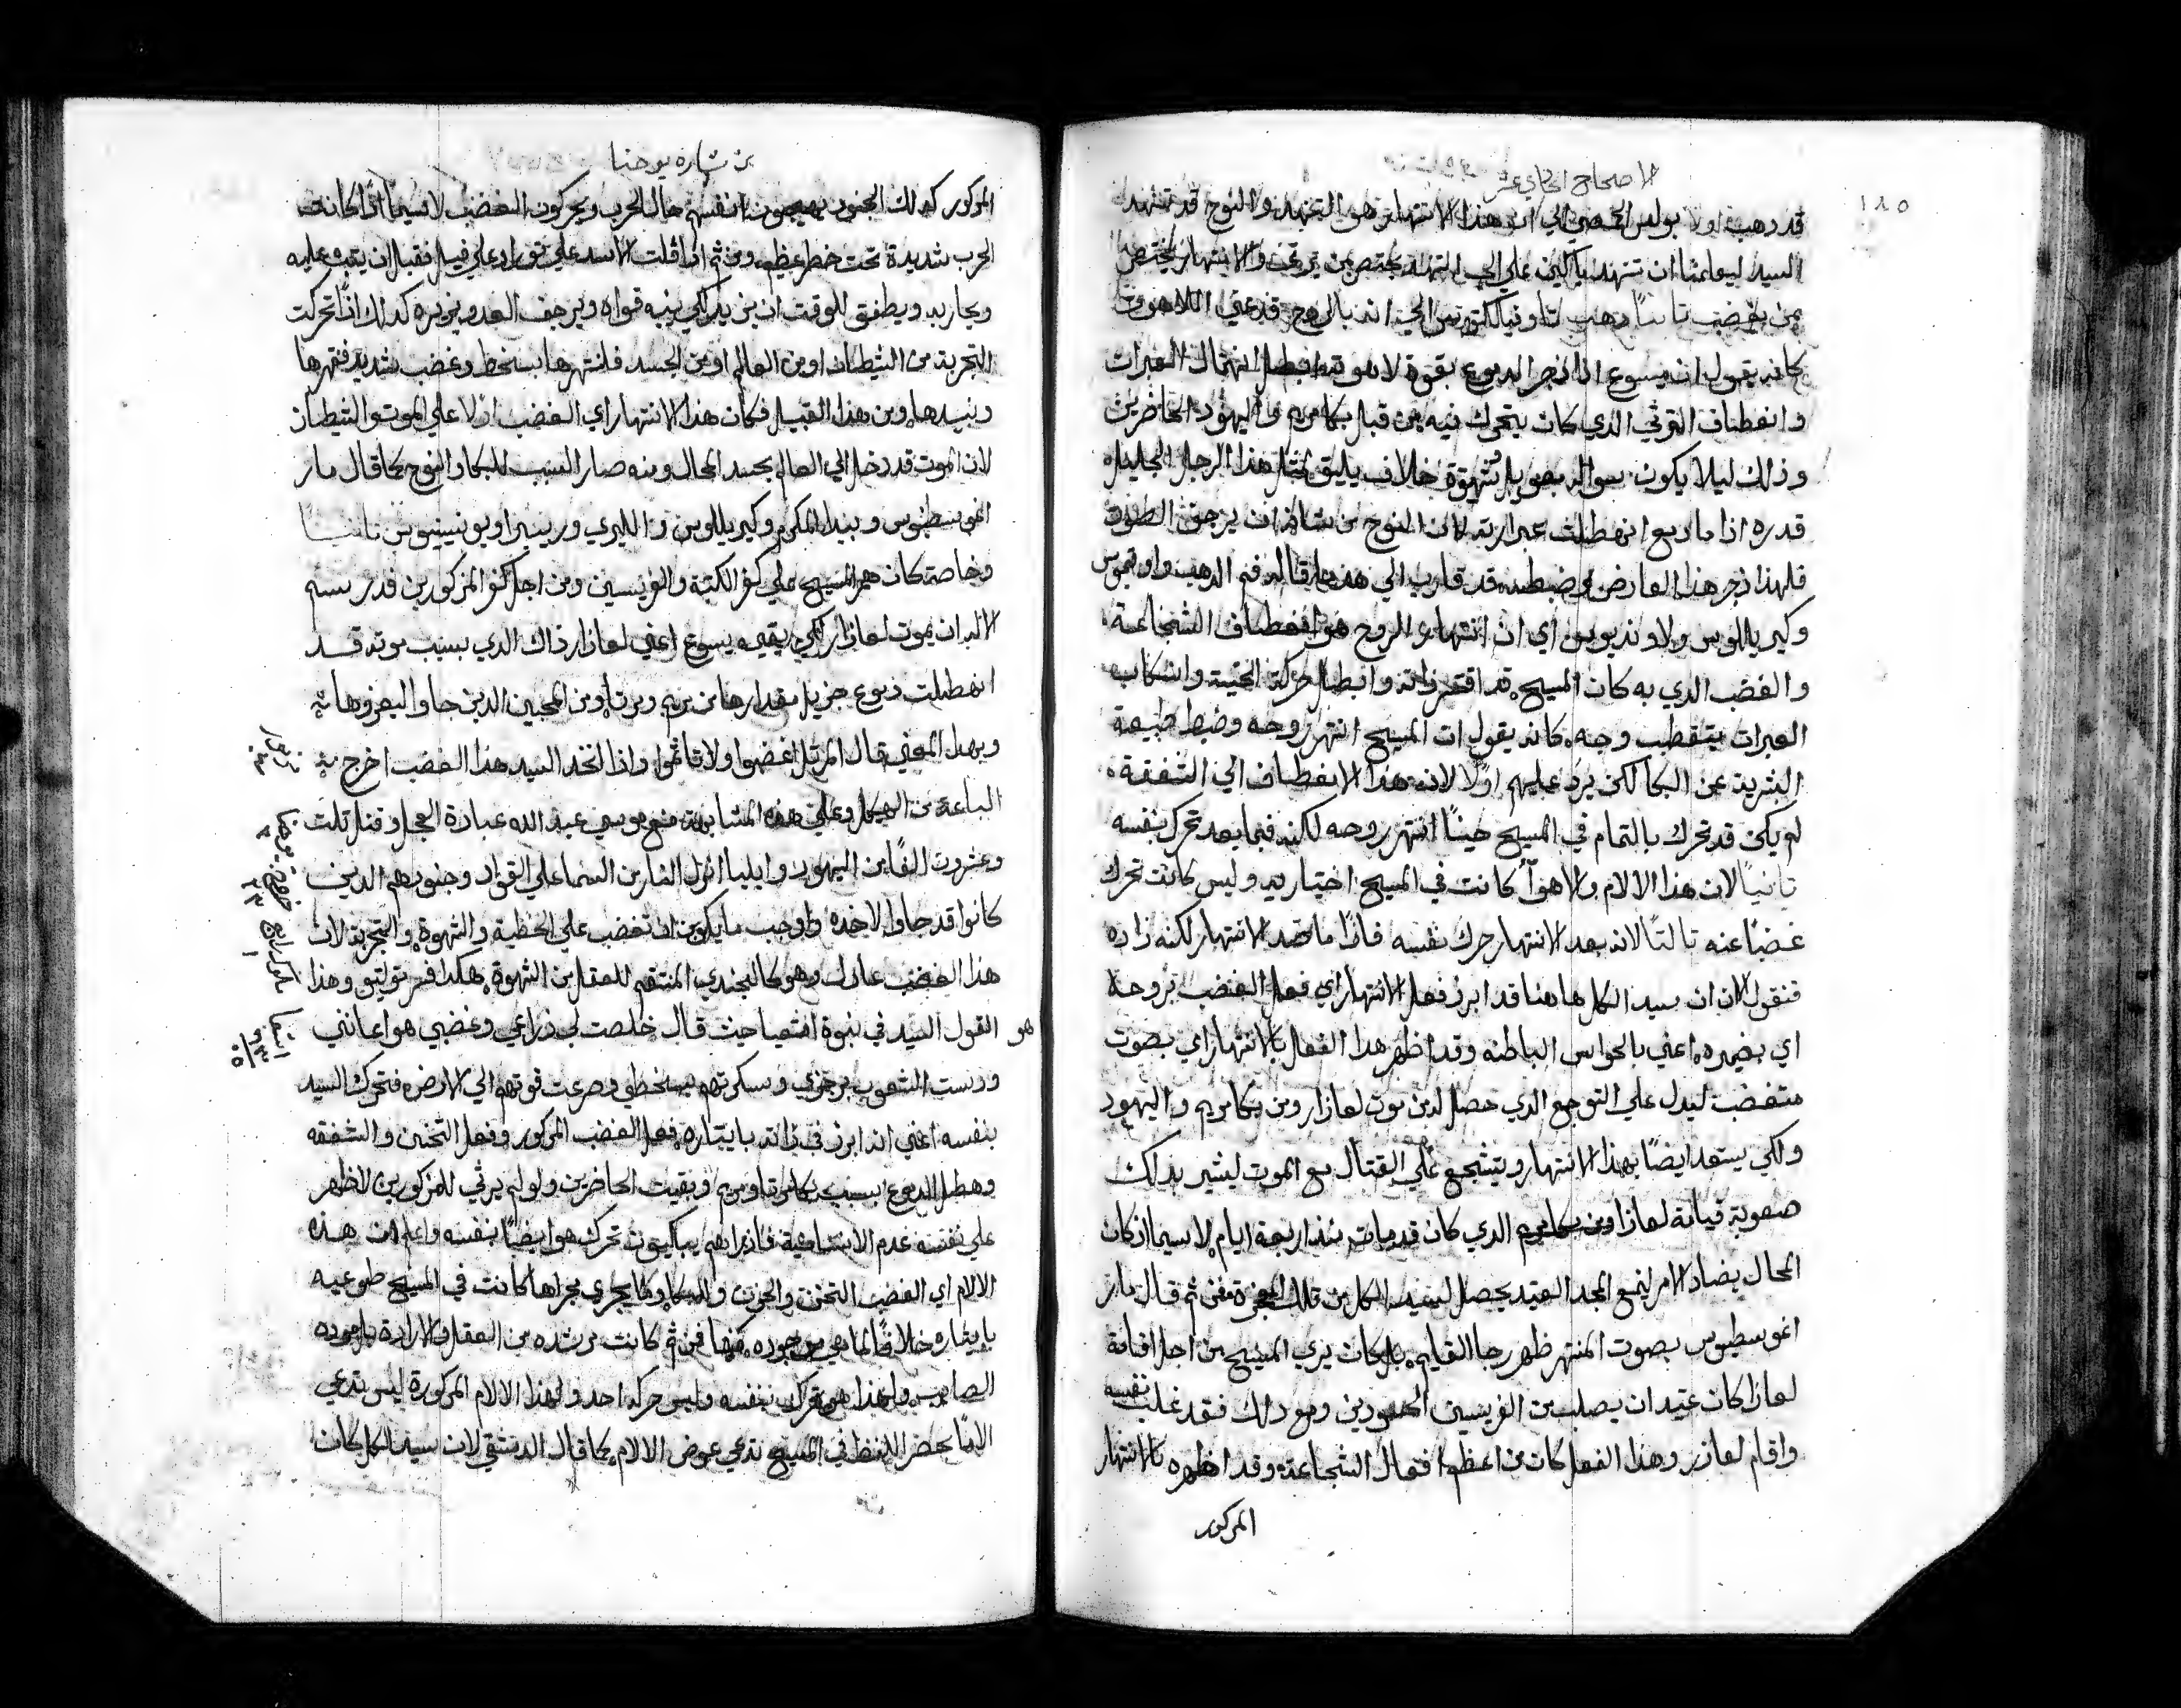 الاصحاح الحادي عشر
١٨٥
قد ذهب اولا بولس الحمصي الي ان هذا الانتهار هو التنهد والنوح قد تنهد
السيد ليعلمنا ان نتنهد باكين علي الي التنهد يختص بمن يرتي والانتهار يختص
بمن يغضب تانيًا ذهب تاوفيلكتوس الي انه بالروح قد عني اللاهوت
كانه يقول ان يسوع اذا زجر الدموع بقوة لاهوته ابطل انهمال العبرات
وانعطاف الترتي الذي كان يتحرك فيه من قبل بكا مريم واليهود الحاضرين
وذلك ليلا يكون بنوح خلاف يليق بمثل هذا الرجل الجليل
قدره اذا ما دمع انهطلت عبراته لان النوح من شانه ان يرجف الصوت
فلهذا زجر هذا العارض وضبطه قد قارب الي هذه ما قاله فم الذهب واوتيموس
وكيريللوس ولاونديوس اي ان انتهار الروح هو انعطاف الشجاعة
والغضب الذي به كان المسيح قد اقتهر ذاته وابطال حركة الحنية وانسكاب
العبرات بتقطيب وجهه كانه يقول ان المسيح انتهر روحه وضبط طبيعة
البشرية عن البكا لكن يرد عليهم اولًا لانه هذا الانعطاف الي الشفقة
لم يكن قد تحرك بالتمام في المسيح حينًا انتهر روحه لكنه فيما بعد تحرك بنفسه
تانيًا لان هذا الالام والاهوآ كانت في المسيح اختياريه وليس كانت تحرك
غضبًا عنه تالتًا لانه بعد الانتهار حرك نفسه فاذًا ما ضد الانتهار لكنه زاده
فنقول الان ان سيد الكل هاهنا قد ابرز فعل الانتهار اي فعل الغضب بروحه
اي بضميره اعني بالحواس الباطنه وقد اظهر هذا الفعل بالانتهار اي بصوت
متغضب ليدل علي التوجع الذي حصل له من موت لعازار ومن بكا مريم واليهود
ولكي يستعد ايضًا بهذا الانتهار ويتشجع علي القتال مع الموت ليشير بذلك
صعوبة قيامة لعازار الذي كان قد مات منذ اربعة ايام لاسيما اذ كان
المحال يضاد الامر ليمنع المجد العتيد يحصل لسيد الكل من تلك المعجزة فمن ثم قال مار
اغوسطيوس بصوت المنتهر ظهر رجا القايم بل كان يري المسيح من اجل اقامة
لعازار كان عتيد ان يصلب من الفريسين الحسودين ومع ذلك فقد غلب نفسه
واقام لعازر وهذا الفعل كان من اعظم افعال الشجاعة وقد اظهره بالانتهار
المذكور
من بشارة يوحنا
المذكور كذلك الجنود يهيجون انفسهم حال الحرب ويحركون الغضب لاسيما اذا كانت
الحرب شديدة تحت خطر عظيم ومن ثم اذا قلت الاسد علي ثور او علي فيل فقبل ان يتب عليه
ويحاربه ويطفق للوقت ان يزيد لكي ينبه قواه ويرجف العدو كذلك اذًا تحركت
التجربة من الشيطان او من العالم او من الجسد فلنتهرها بسخط وغضب شديد فنقهرها
ونبيدها ومن هذا القبيل فكان هذا الانتهار اي الغضب اولا علي الموت والشيطان
لان الموت قد دخل الي العالم بحسد المحال ومنه صار السبب للبكا والنوح كما قال مار
اغوسطيوس وبيدا المكرم وكيريللوس والليري وربيرا ويونسينيوس تانيًا
وخاصة كان همر المسيح علي كفر الكتبة والفريسين ومن اجل كفر المذكورين قد رسم
الاله ان يموت لعازار لكي يقيمه يسوع اعني لعازار ذاك الذي بسبب موته قد
انهطلت دموع جزيل مقدارها من مريم ومرتا ومن المحبين الذين جاوا ليعزوهما
وبهذا المعني قال المرتل اغضبوا ولا تاتموا واذ اتخذ السيد هذا الغضب اخرج
مزمور ٤
الباعة من الهيكل وعلي هذه المشابهة منع موسي عبد الله عبادة العجل وقتل تلت
وعشرون الفًا من اليهود وايليا انزل النار من السما علي القواد وجنودهم الذين
خروج ٣٢
كانوا قد جاوا لاخذه واوجب ما يكون ان تغضب علي الخطية والشهوة والتجربة لان
ملوك رابع ١
هذا الغضب عادل وهو كالجندي المنتقم للعقل من الشهوة هكذا فسر تولتيو وهذا
هو القول السيد في نبوة اشعيا حيث قال خلصت لي ذراعي وغضبي هو اعانني
اشعيا ٦٣ ٥
ودست الشعوب برجزي وسكرتهم بسخطي وصرعت قوتهم الي الارض فتحرك السيد
بنفسه اعني انه ابرز في ذاته بايثاره فعل الغضب المذكور وفعل التحنن والشفقه
وهطل الدموع بسبب بكا مرتا ومريم وبقيت الحاضرين ولو لم يرتي للمذكورين لاظهر
علي نفسه عدم الانسانية فاذ راهم يبكيون تحرك هو ايضًا بنفسه واعلم ان هذه
الالام اي الغضب التحنن والحزن والبكا وما يجري مجراها كانت في المسيح طوعيه
بايثاره خلافًا لما هي موجوده فينا فمن ثم كانت مرشده من العقل والارادة
الصايب ولهذا هو تحرك بنفسه وليس حركه احد ولهذا الالام المذكورة ليس تدعي
الامًا بحضر اللفظ في المسيح تدعي عوض الالام كما قال الدمشقي لان سيد الكل كان